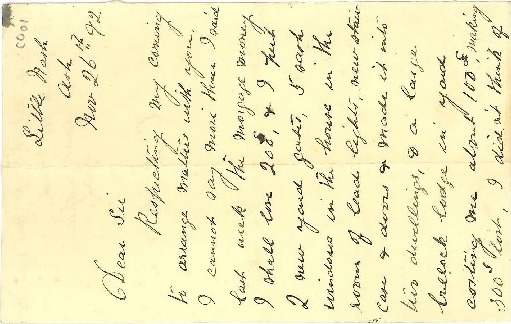 C001
Little Nash
Ash
Nov 26th 92
Dear Sir
Respecting my coming
to arrange matters with you,
I cannot say more than I said
last week, the morgage money
I shall lose 20£, & I put
2 new yard gates, 5 sash
windows in the house in the
room of lead lights, new stair
case & doors & made it into
two dwellings, & a large
bullock lodge in yard
costing me about 100£, making
300£ lost, I did not think of